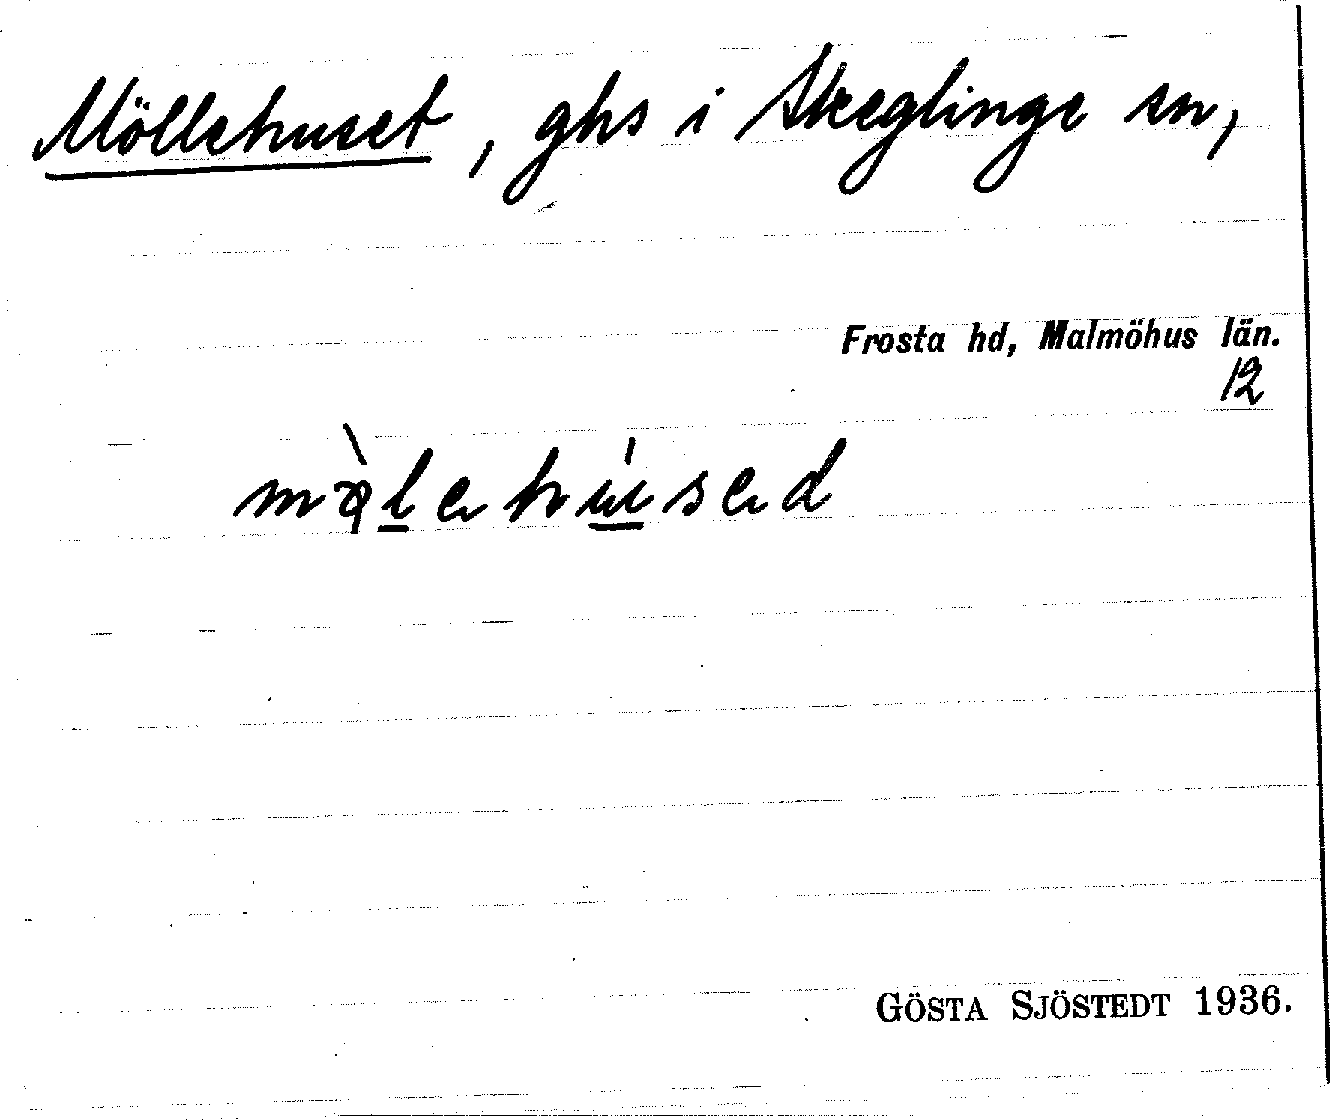 Möllehuset, ghs i Skeglinge sn,
Frosta hd, Malmöhus län.
12
GÖSTA SJÖSTEDT 1936.